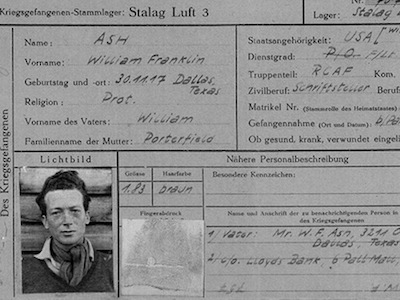 Kriegsgefangenen-Stammlager: Stalag Luft 3
Lager: Stalag L
Name: ASH
Vorname: William Franklin
Geburtstag und -ort: 30.11.17 Dallas, Texas
Religion: Prot.
Vorname des Vaters: William
Familienname der Mutter: Porterfield
Staatsangehörigkeit: USA
Dienstgrad: P/O. F/Lt.
Truppenteil: RCAF Kom.
Zivilberuf: Schriftsteller Beruf
Matrikel Nr. (Stammrolle des Heimatstaates)
Gefangennahme (Ort und Datum):
Ob gesund, krank, verwundet eingelie
Des Kriegsgefangenen
Lichtbild
Grösse Haarfarbe
1.83 braun
Fingerabdruck
Nähere Personalbeschreibung
Besondere Kennzeichen:
Name und Anschrift der zu benachrichtigenden Person in
des Kriegsgefangenen
1, Vater: Mr. W. F. Ash, 3211
Dallas, Texas
2, c/o. Lloyds Bank 6 Pall Mall,